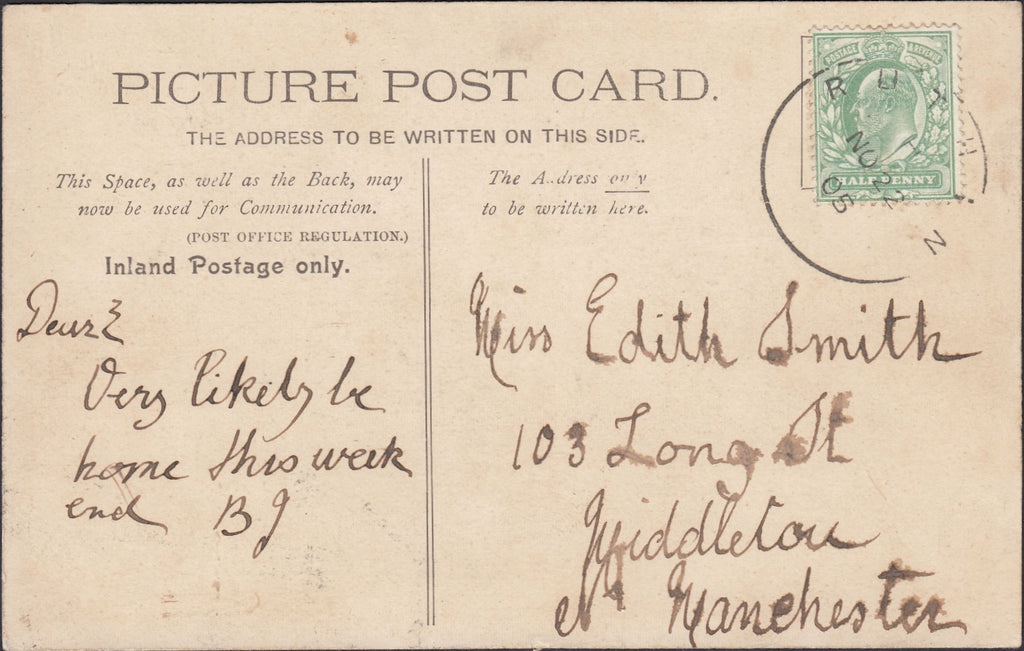 PICTURE POST CARD.
THE ADDRESS TO BE WRITTEN ON THIS SIDE.
POSTAGE & REVENUE
HALFPENNY
NO 22
05
This Space, as well as the Back, may
now be used for Communication.
(POST OFFICE REGULATION.)
Inland Postage only.
The Address only
to be written here.
Dear E
Very likely be
home this week
end BJ
Miss Edith Smith
103 Long St
Middleton
Nr Manchester